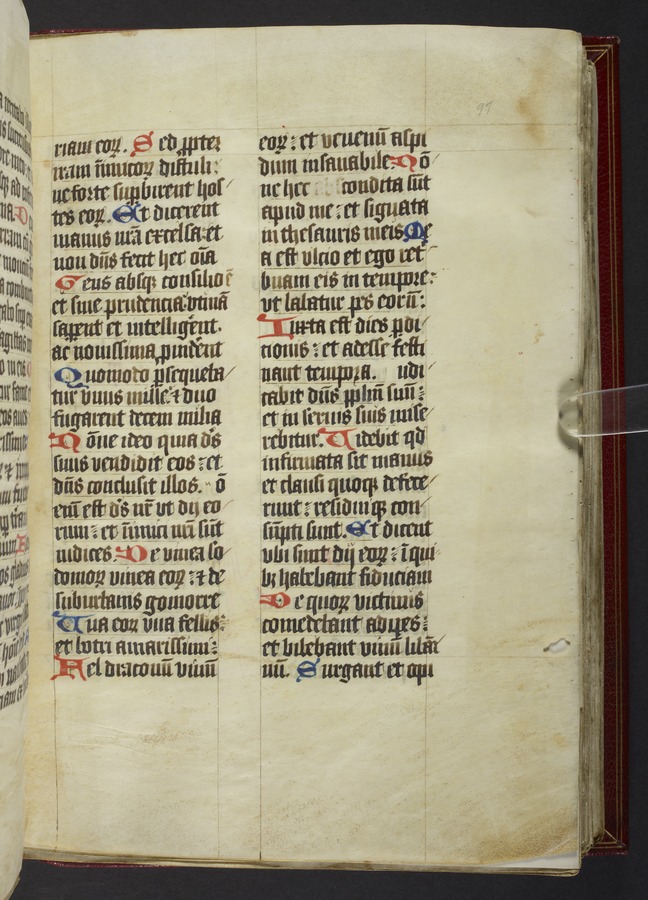 riam eoꝝ. Sed ꝓpter
iram inimicoꝝ distuli:
ne forte suꝑbirent hos
tes eoꝝ. Et dicerent
manus nr̄a excelsa: et
non dn̄s fecit hec oīa
Gens absqꝫ consilio ē
et sine prudencia: vtinā
saꝑent et intelligerēt.
ac nouissima ꝓuiderēt
Quomodo ꝑsequeba
tur vnus mille: ⁊ duo
fugarent decem milia
Nōne ideo quia ds̄
suus vendidit eos: et
dn̄s conclusit illos. ō
enī est ds̄ nr̄ vt dij eo
rum: et inimici nr̄i sūt
iudices. De vinea so
domoꝝ vinea eoꝝ: ⁊ de
suburbanis gomorre
Uua eoꝝ vua fellis:
et botri amarissimi:
Fel draconū vinū
eoꝝ: et venenū aspi
dum insanabile. Nō
ne hec condita sūt
apud me: et signata
in thesauris meis. Me
a est vlcio et ego ret
buam eis in tempore:
vt labatur pes eorū:
Iuxta est dies ꝑdi
cionis: et adesse festi
nant tempora. udi
cabit dn̄s pplm̄ suū:
et in seruis suis mise
rebitur. Uidebit qd
infirmata sit manus
et clausi quoqꝫ defece
runt: residuiqꝫ con
sūpti sunt. Et dicent
vbi sunt dij eoꝝ: ī qui
bꝫ habebant fiduciam
De quoꝝ victimis
comedebant adipes:
et bibebant vinū libāi
nū. Surgant et opi
97